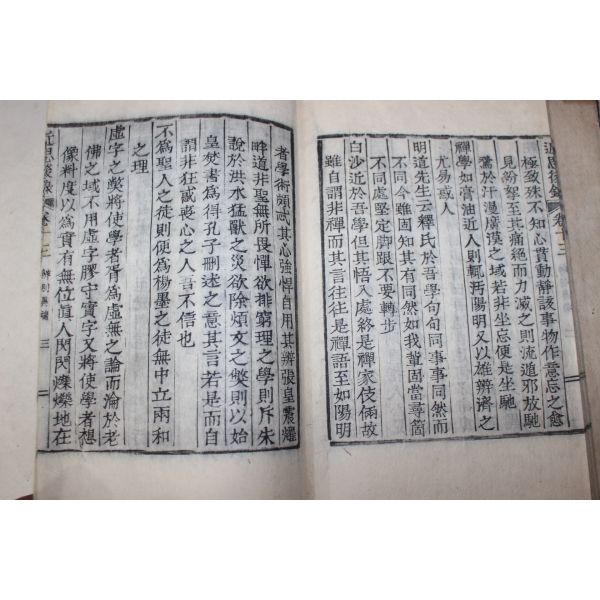 近思後錄 卷十三
極致殊不知心貫動靜該事物作意忘之愈
見紛挐至其痛絕而力滅之則流遁邪放馳
騖於汗漫廣漠之域若非坐忘便是坐馳
禪學如膏油近人則輒汚陽明又以雄辨濟之
尤易惑人
明道先生云釋氏於吾學句句同事事同然而
不同今雖固知其有同然如我輩固當尋箇
不同處堅定脚跟不要轉步
白沙近於吾學但其悟入處終是禪家伎倆故
雖自謂非禪而其言往往是禪語至如陽明
者學術頗忒其心強悍自用其辨張皇震耀
畔道非聖無所畏憚欲排窮理之學則斥朱
說於洪水猛獸之災欲除煩文之獘則以始
皇焚書爲得孔子刪述之意其言若是而自
謂非狂惑喪心之人吾不信也
不爲聖人之徒則便爲楊墨之徒無中立兩和
之理
虛字之獘將使學者胥爲虛無之論而淪於老
佛之域不用虛字膠守實字又將使學者想
像料度以爲實有無位眞人閃閃爍爍地在
近思後錄 卷十三 辨別異端 三